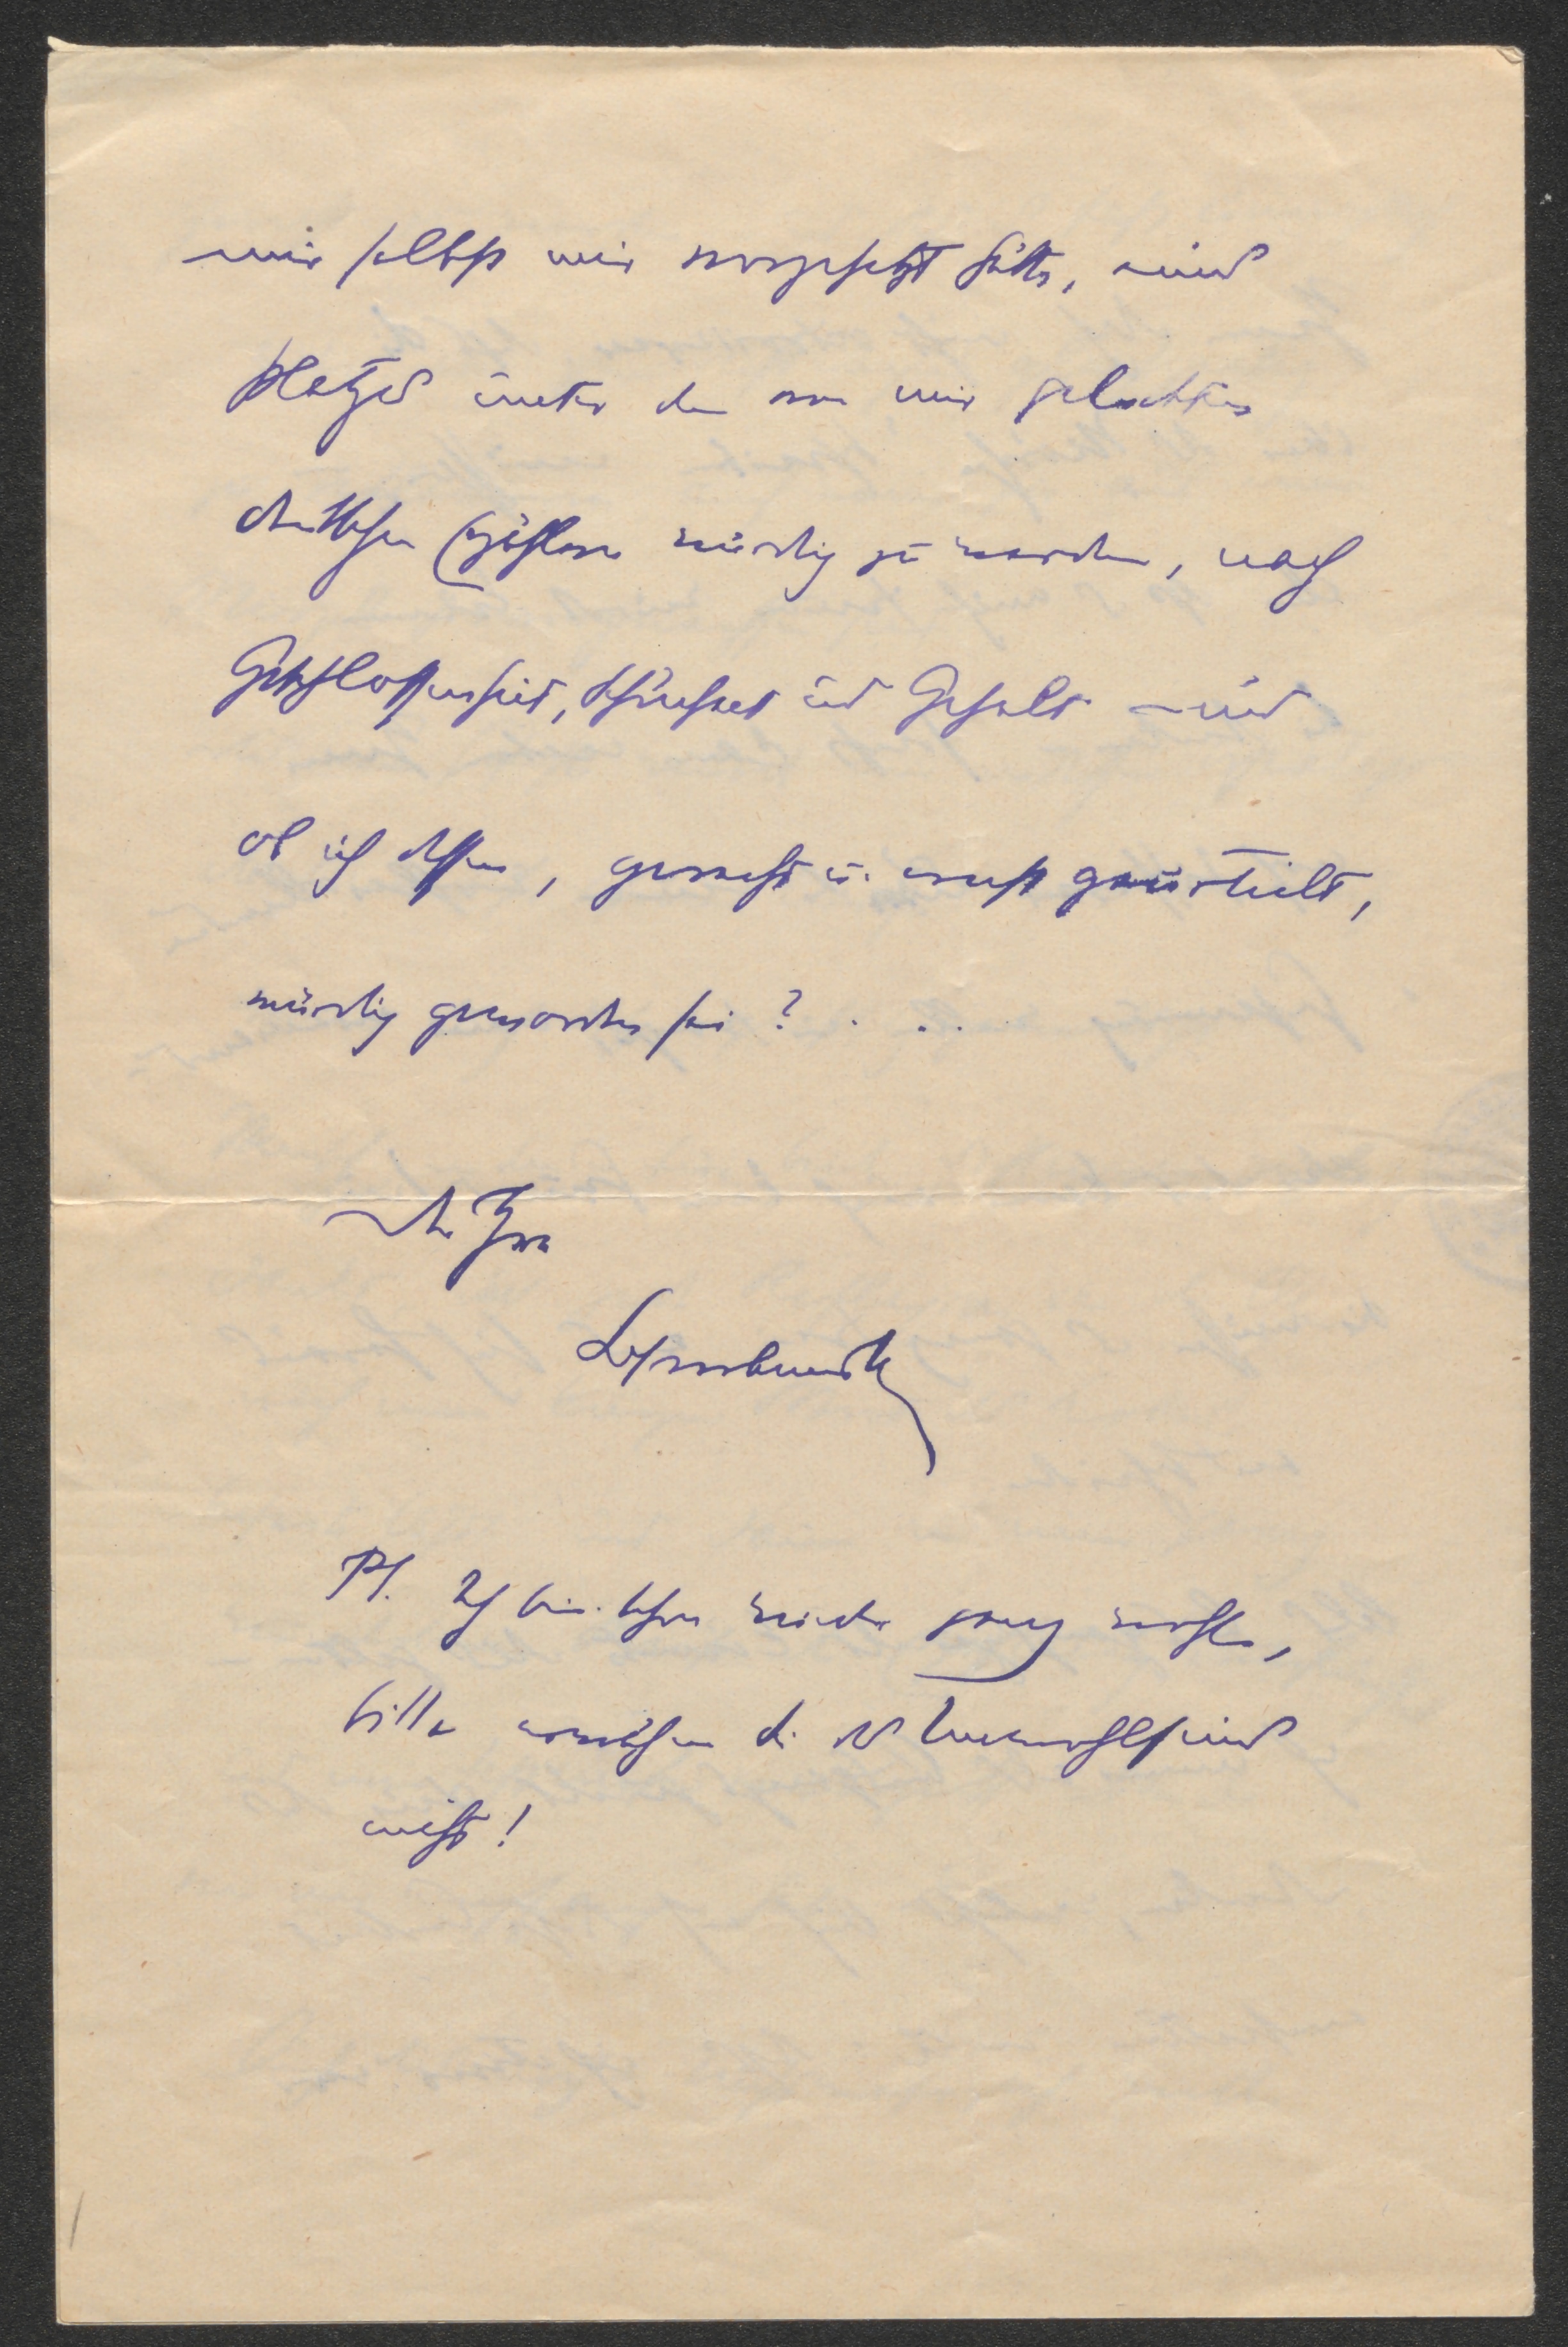 mir selbst mir vorgesetzt hätte, eines
Platzes unter den von mir geliebten
deutschen Erzählern würdig zu werden, nach
Geschlossenheit, Schönheit und Gehalt – und
ob ich dessen, gerecht u. ernst geurteilt,
würdig geworden sei? . . .
– der Ihre
PS. Ich bin schon wieder ganz wohl,
bitte erwähnen Sie des Unwohlseins
nicht!